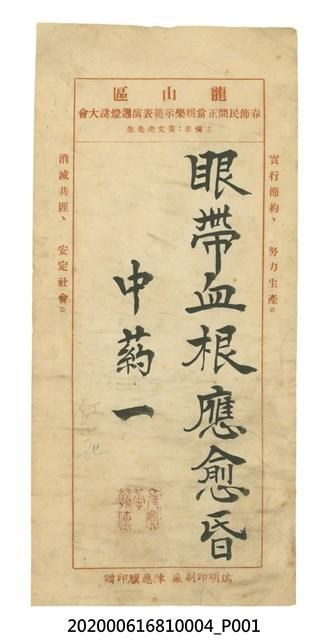 龍山區
春節民間正當娛樂示範表演週燈謎大會
主備者：黃文虎先生
實行節約、努力生產。
眼帶血根應愈昏
中药一
消滅共匪、安定社會。
紅花
瑞明印刷廠 陳應驥印贈
202000616810004_P001